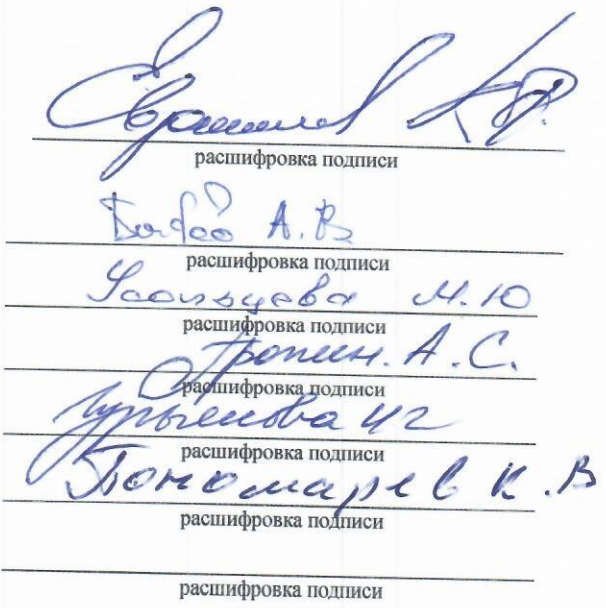 расшифровка подписи
А. В.
расшифровка подписи
Усольцева М.Ю
расшифровка подписи
А.С.
расшифровка подписи
Гурьянова ИГ
расшифровка подписи
Пономарев К.В
расшифровка подписи
расшифровка подписи